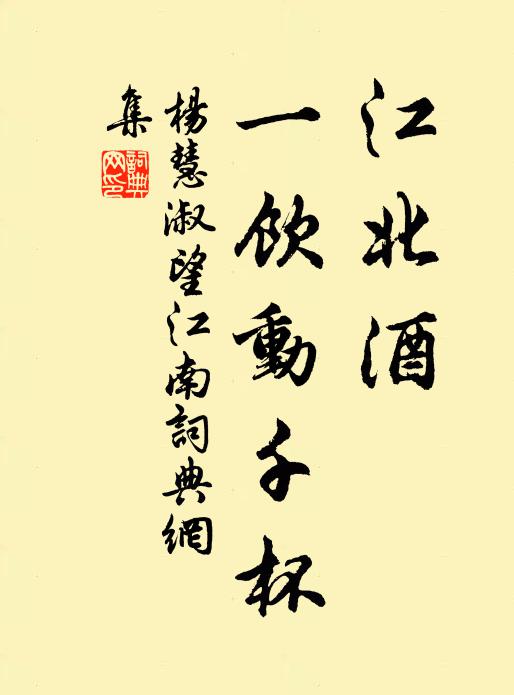 江北酒
一飲動千杯
楊慧淑望江南詞典網
集
詞典
网印